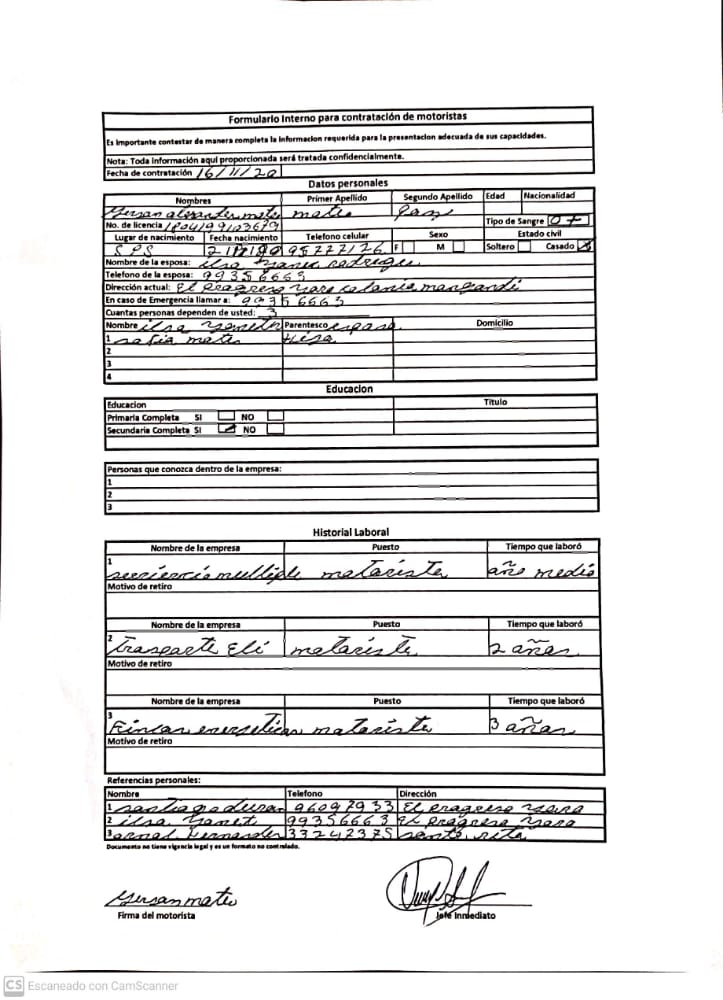 Formulario Interno para contratación de motoristas
Es importante contestar de manera completa la informacion requerida para la presentacion adecuada de sus capacidades.
Nota: Toda información aquí proporcionada será tratada confidencialmente.
Fecha de contratación 16/11/20
Datos personales
Nombres Primer Apellido Segundo Apellido Edad Nacionalidad
mateo
No. de licencia Tipo de Sangre O+
Lugar de nacimiento Fecha nacimiento Telefono celular Sexo Estado civil
S.P.S 95777126 F M Soltero Casado
Nombre de la esposa: ilsa
Telefono de la esposa: 99356663
Dirección actual: El progreso yoro colonia
En caso de Emergencia llamar a: 99356663
Cuantas personas dependen de usted: 3
Nombre ilsa Parentesco esposa Domicilio
1 mateo
2
3
4
Educacion
Educacion Titulo
Primaria Completa SI NO
Secundaria Completa SI NO
Personas que conozca dentro de la empresa:
1
2
3
Historial Laboral
Nombre de la empresa Puesto Tiempo que laboró
1 multiple motorista año medio
Motivo de retiro
Nombre de la empresa Puesto Tiempo que laboró
2 trasporte Eli motorista 2 años
Motivo de retiro
Nombre de la empresa Puesto Tiempo que laboró
3 motorista 3 años
Motivo de retiro
Referencias personales:
Nombre Telefono Dirección
1 santiago duran 96097933 El progreso yoro
2 ilsa 99356663 El progreso yoro
3 33242375 santa rita
Documento no tiene vigencia legal y es un formato no controlado.
Gersan mateo
Firma del motorista Jefe Inmediato
CS Escaneado con CamScanner